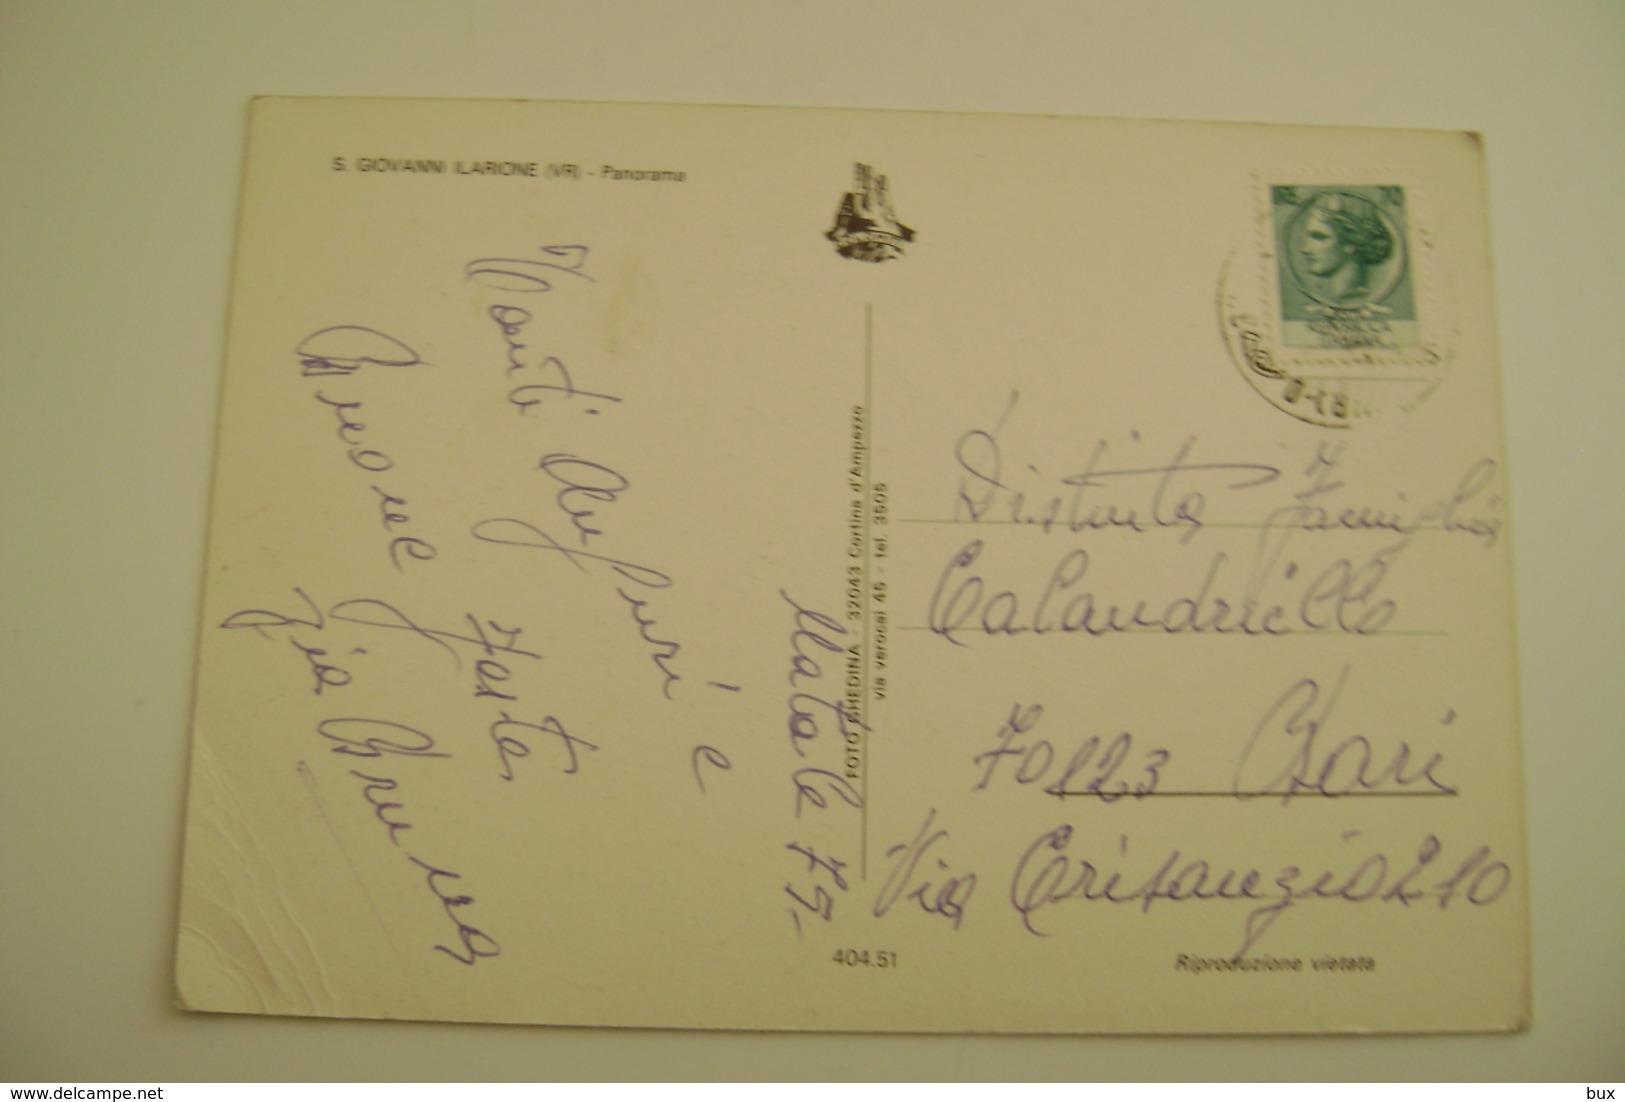 S. GIOVANNI ILARIONE (VR) - Panorama
Tanti Auguri e
Buone Feste
Zia Bruna
Natale 75-
FOTO GHEDINA - 32043 Cortina d'Ampezzo
via verocai 45 - tel. 3505
70
REPUBBLICA
ITALIANA
Distinta Famiglia
Calandriello
70123 Bari
Via Crisanzio 210
404.51
Riproduzione vietata
delcampe.net
bux